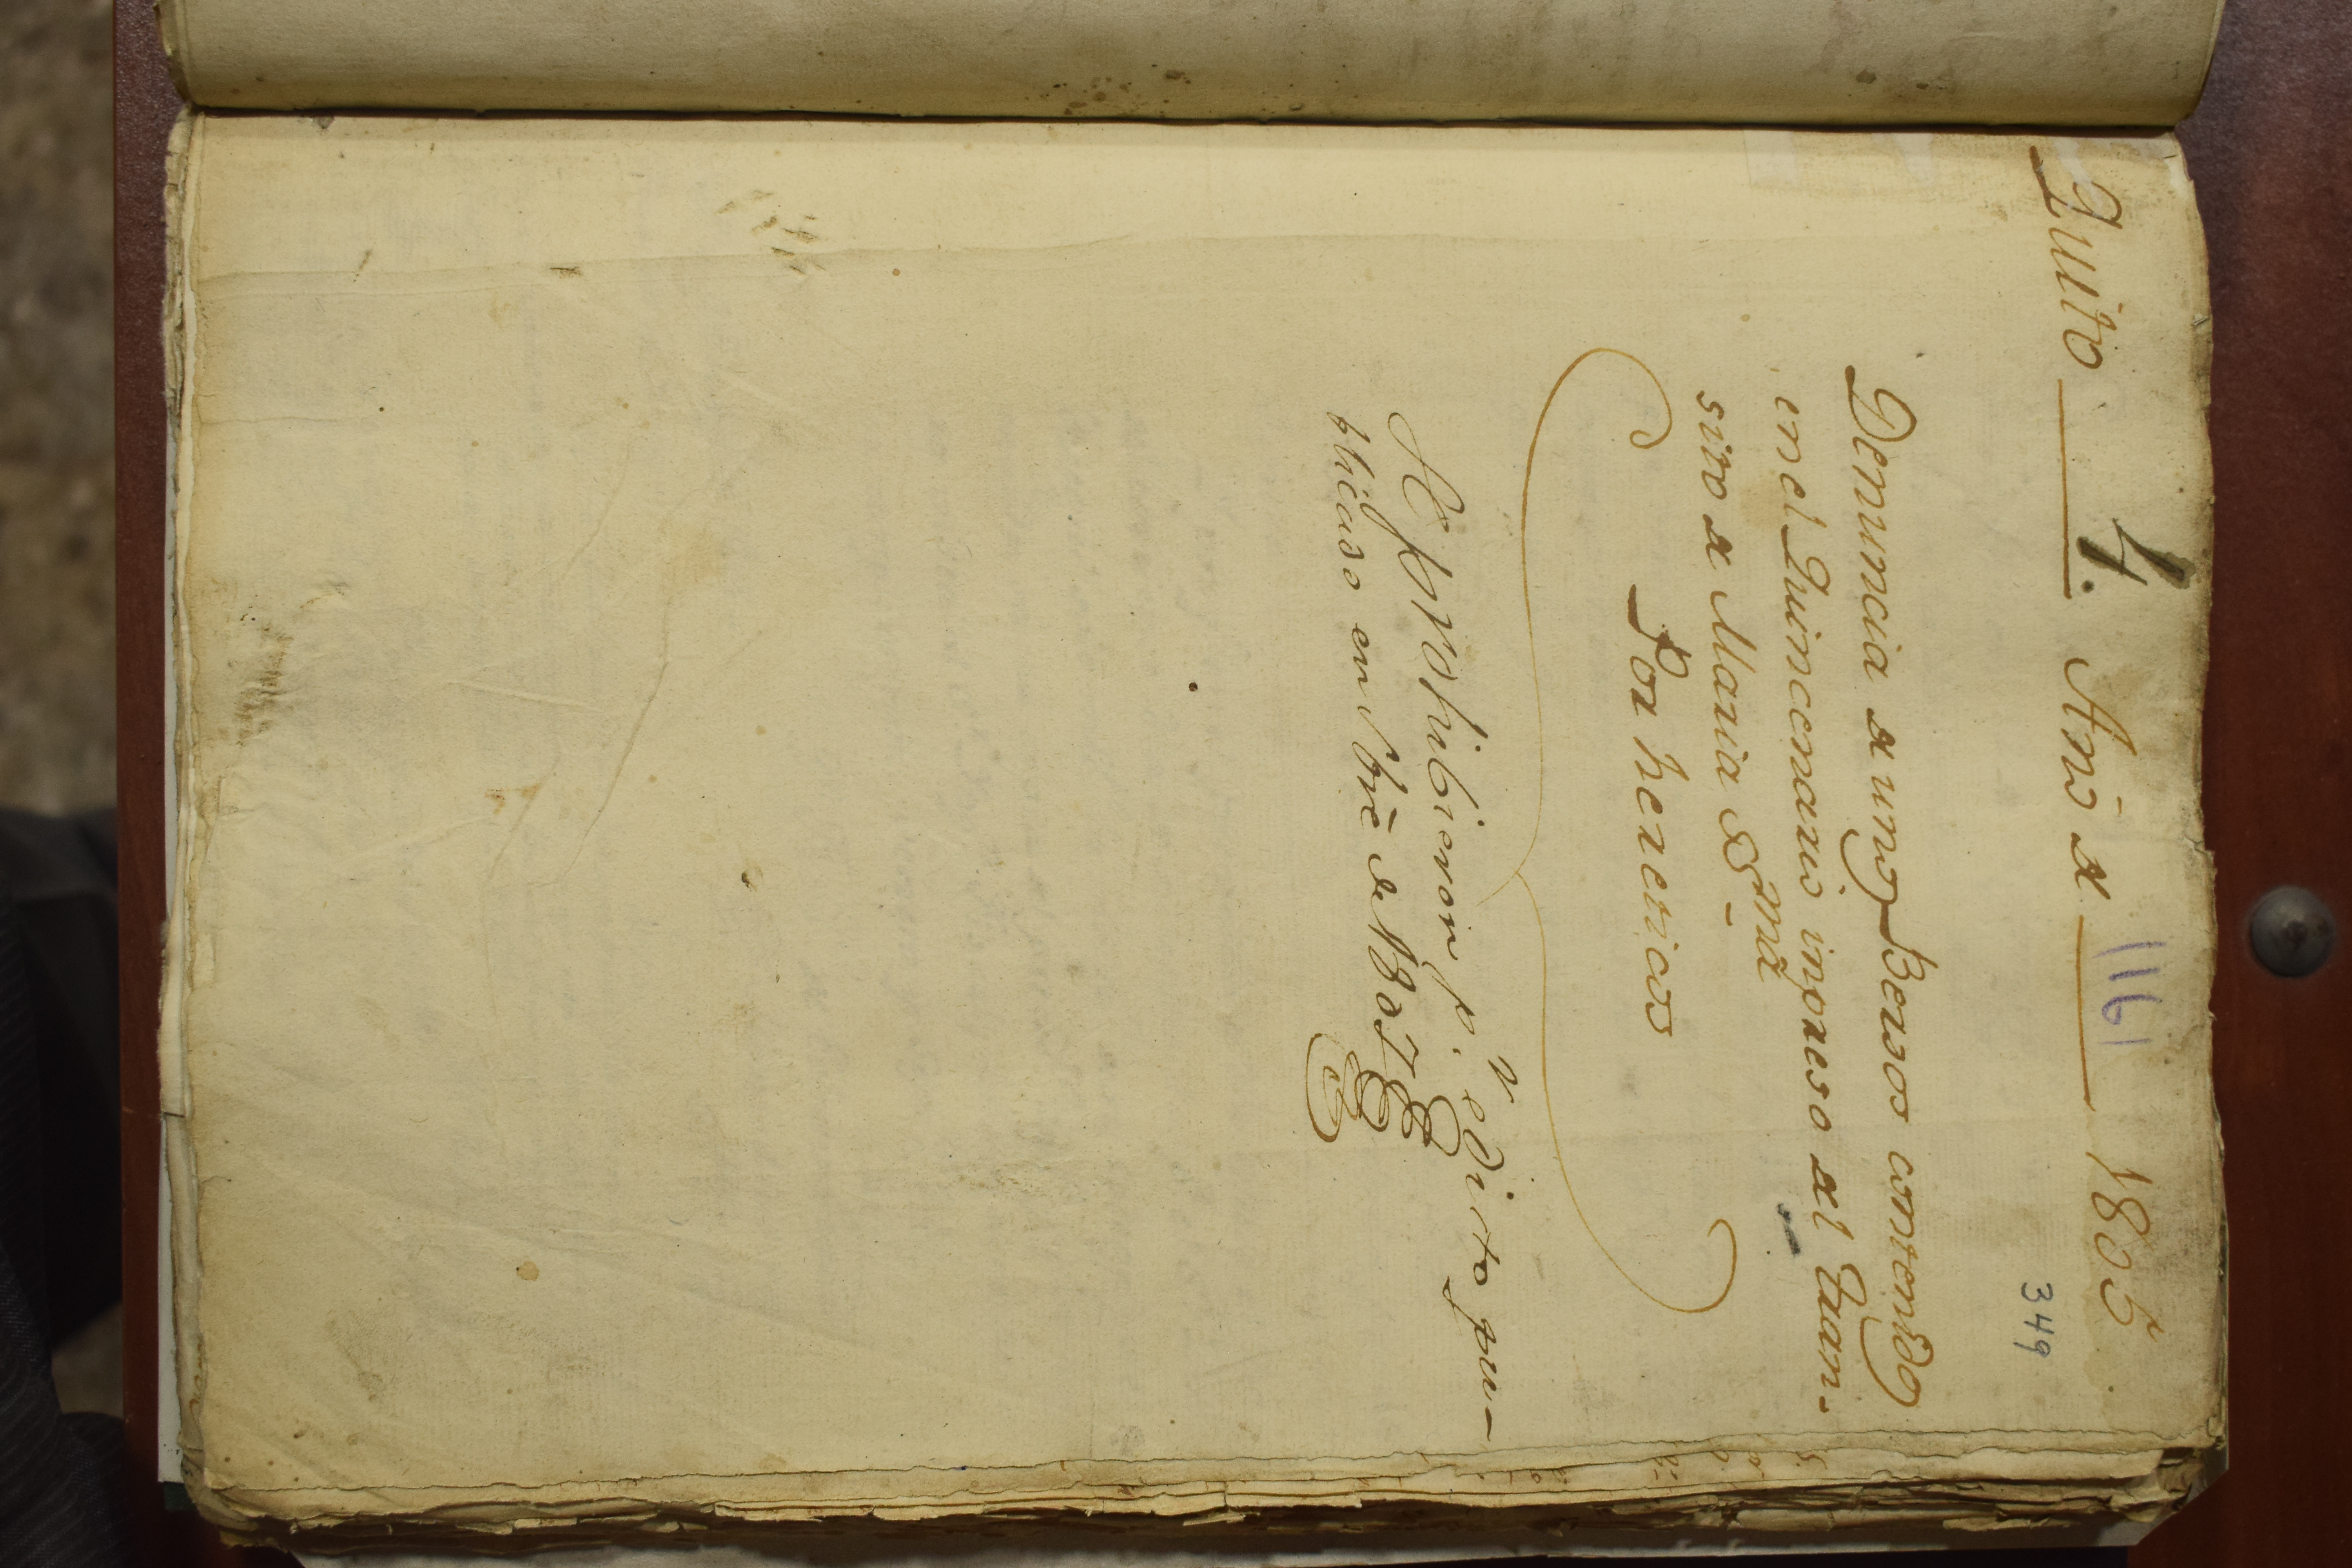 Quito 4. Año de 1161 1805
349
Denuncia de unos Versos contenidos
en el Quincenario impreso del Tran-
sito de Maria SSma
Por hereticos
Se prohibieron p.r edicto pu-
blicado en Obre de 1807